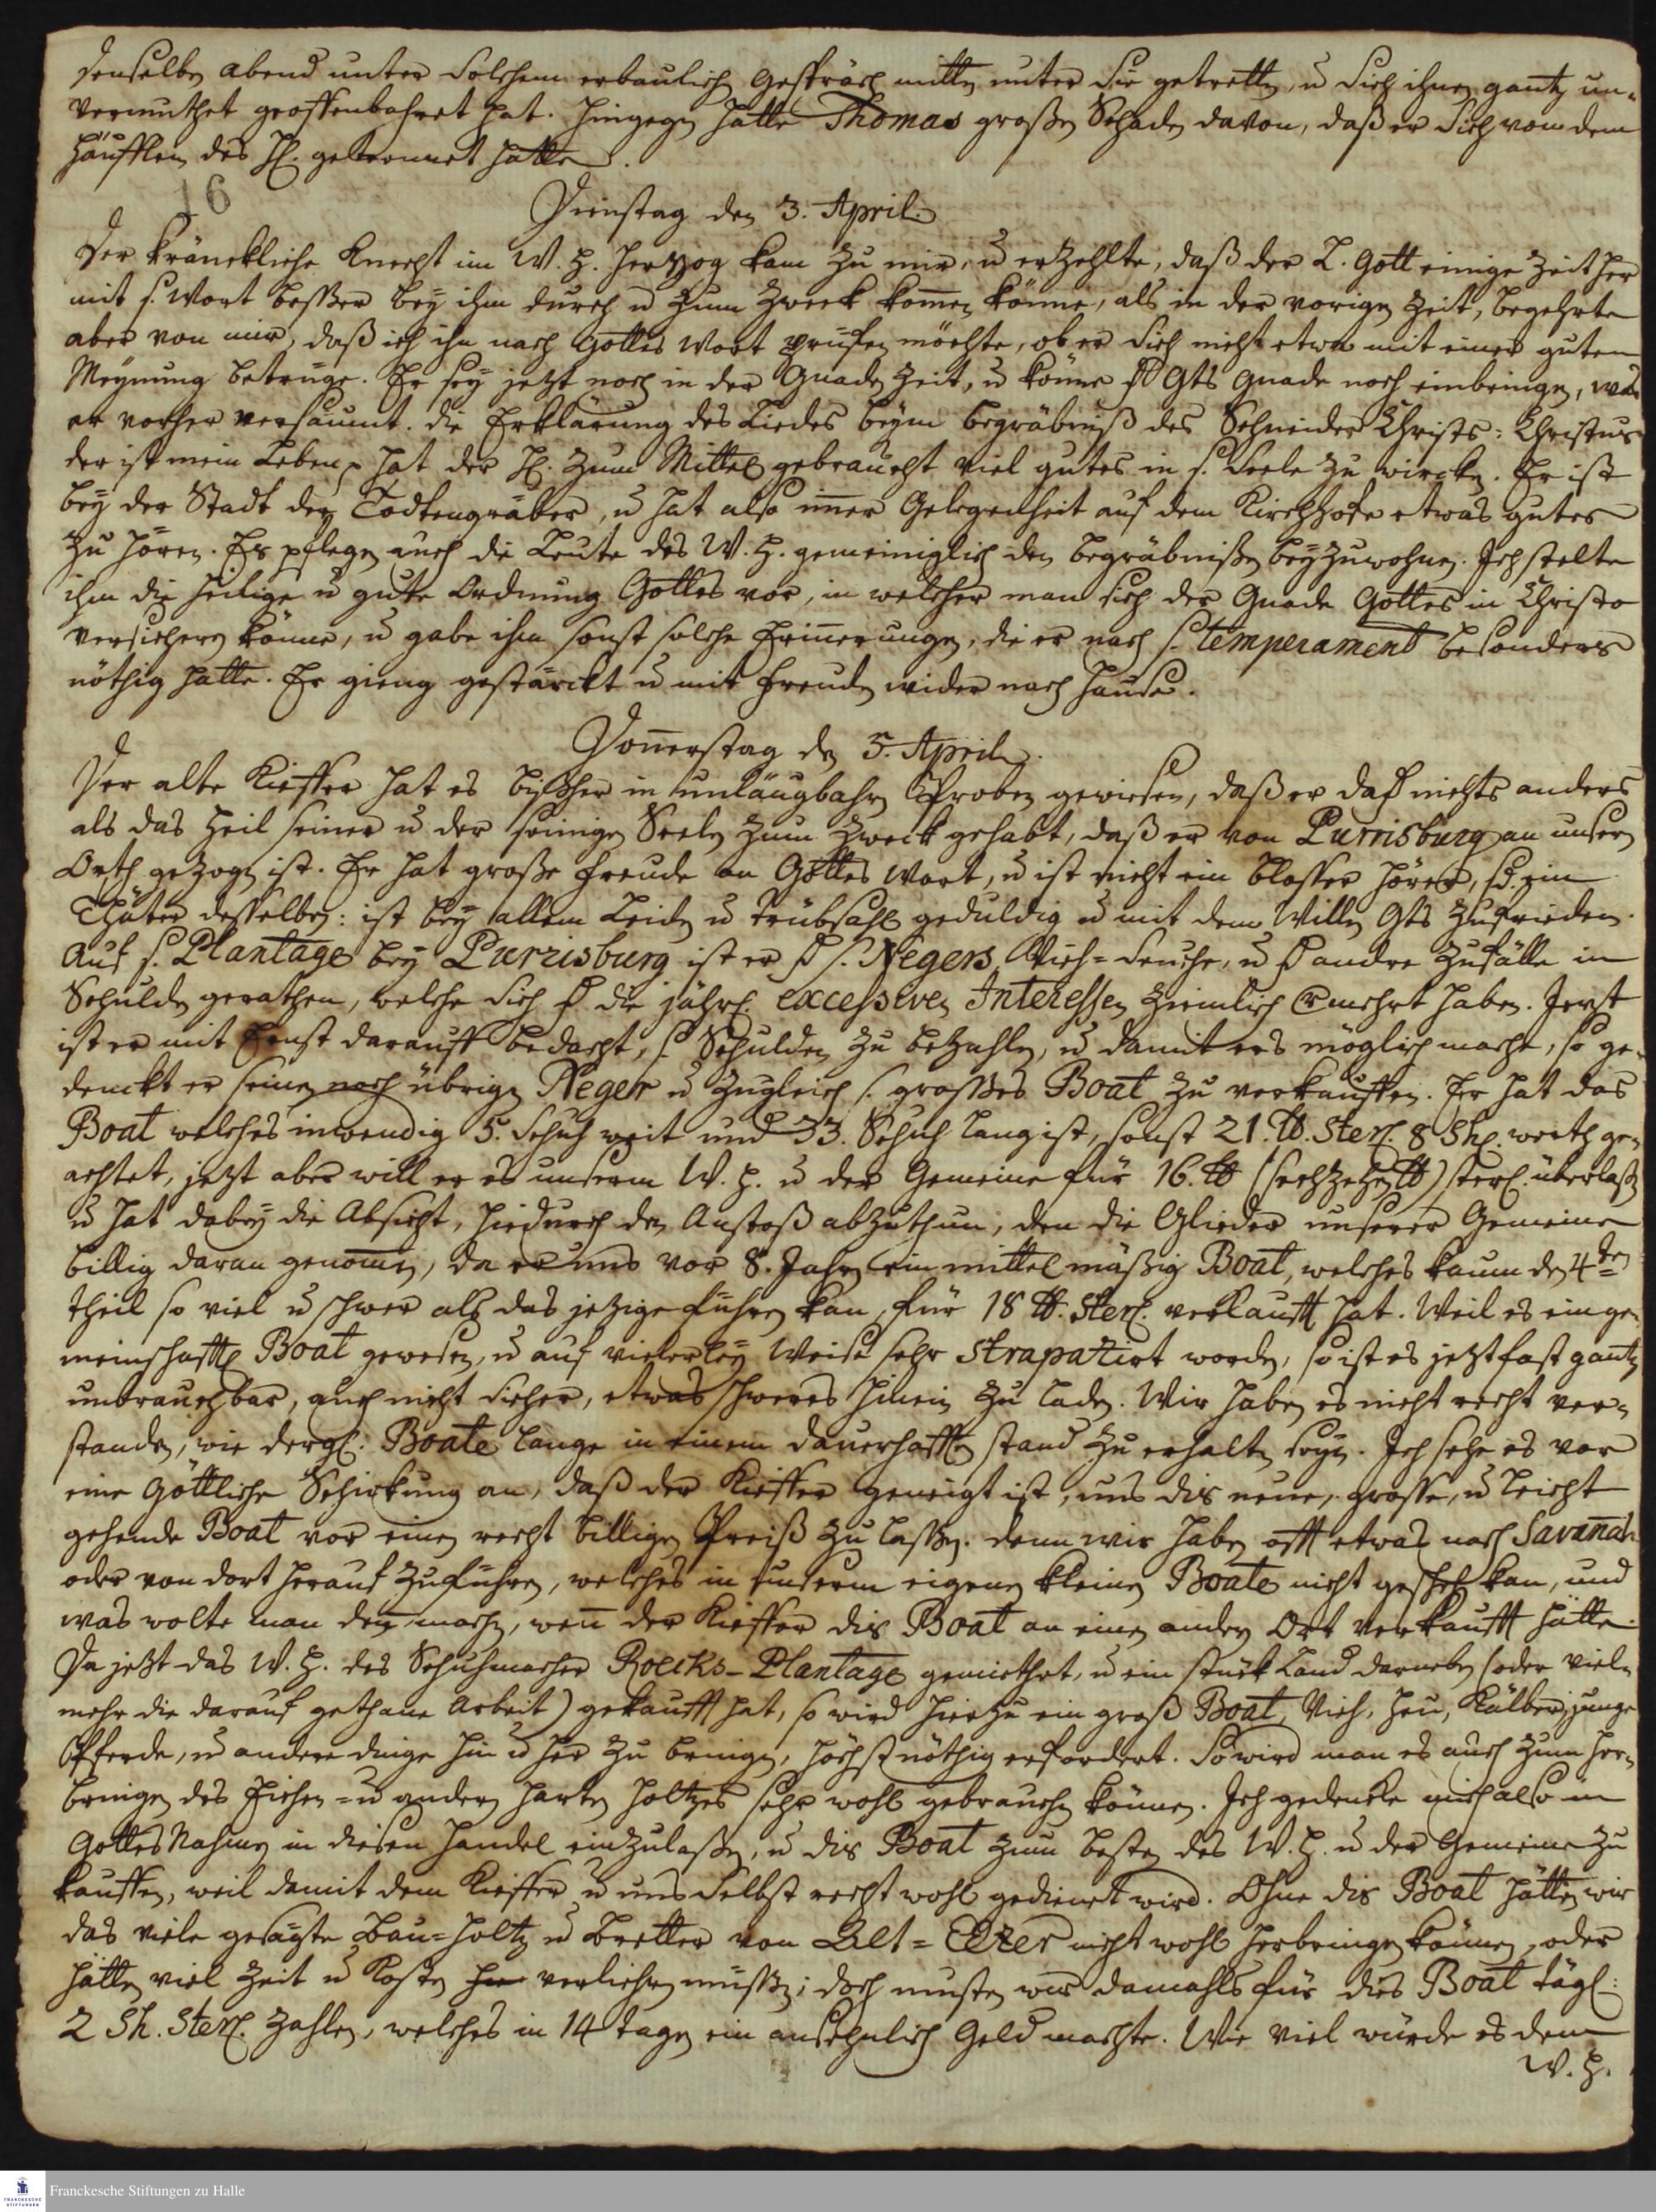 denselben Abend unter solchem erbaulich Gespräch mitten unter Sie getretten, u. sich ihnen gantz un-
vermuthet geoffenbahret hat. Hingegen hatte Thomas großen Schaden davon, daß er sich von dem
Häufflen des H. getrennet hatte.
16
Dienstag den 3. April.
Der kränckliche Knecht im W. H. Herzog kam zu mir, u. erzehlte, daß der L. Gott einige Zeit her
mit s. Wort beßer bey ihm durch u. zum Zweck kom̄en könne, als in der vorigen Zeit, begehrte
aber von mir, daß ich ihn nach Gottes Wort prüfen möchte, ob er sich nicht etwa mit einer guten
Meynung betrüge. Er sey jetzt noch in der Gnaden Zeit, u. könne d. Gts Gnade noch einbringen, was
er vorher versäumt. Die Erklärung des Liedes beym Begräbniß des Schneider Christs: Christus
der ist mein Leben p hat der H. zum Mittel gebraucht viel gutes in s. Seele zu wircken. Er ist
bey der Stadt der Todtengräber, u. hat also im̄er Gelegenheit auf dem Kirchhofe etwas gutes
zu hören. Es pflegen auch die Leute des W. H. gemeiniglich den Begräbnißen beyzuwohnen. Ich stelte
ihm die heilige u. gute Ordnung Gottes vor, in welcher man sich der Gnade Gottes in Christo
versichern könne, u. gabe ihm sonst solche Erin̄erungen, die er nach s. temperament besonders
nöthig hatte. Er gieng gestärckt u. mit Freuden wider nach Hause.
Don̄erstag den 5. April.
Der alte Kieffer hat es bisher in unläugbahren Proben gewiesen, daß er nichts anders
als das Heil seiner u. der seinigen Seelen zum Zweck gehabt, daß er von Purrisburg an unsern
Orth gezogen ist. Er hat große Freude an Gottes Wort, u. ist nicht ein blosser Hörer, sd. ein
Thäter desselben: ist bey allem Leiden u. Trübsahl geduldig u. mit dem Willen Gts zufrieden.
Auf s. Plantage bey Purrisburg ist er d. s. Negers, Vieh-Seuche, u. d. andre Zufälle in
Schulden gerathen, welche sich d. die jährl. excessiven Interessen ziemlich vermehrt haben. Jetzt
ist er mit Ernst darauff bedacht, s. Schulden zu bezahlen, u. damit ers möglich mache, so ge-
denckt er seinen noch übrigen Neger u. zugleich s. großes Boat zu verkauffen. Er hat das
Boat welches inwendig 5. Schuh weit und 33. Schuh lang ist, sonst 21. lb. Sterl. 8 Sh. werth ge-
achtet, jetzt aber will er es unserm W. H. u. der Gemeine für 16. lb (sechzehen lb) sterl. überlaßen
u. hat dabey die Absicht, hiedurch den Anstoß abzuthun, den die Glieder unserer Gemeine
billig daran genom̄en, da er uns vor 8. Jahren ein mittelmäßig Boat, welches kaum den 4ten
theil so viel u. schwer als das jetzige führen kan, für 18 lb. Sterl. verkaufft hat. Weil es ein ge-
meinschafftl. Boat gewesen, u. auf vielerley Weise sehr strapazirt worden, so ist es jetzt fast gantz
unbrauchbar, auch nicht sicher, etwas schweres hinein zu laden. Wir haben es nicht recht ver-
standen, wie dergl. Boate lange in einem dauerhafften stand zu erhalten seyn. Ich sehe es vor
eine Göttliche Schickung an, daß der Kieffer geneigt ist, uns dis neue, grosse, u. leicht
gehende Boat vor einen recht billigen Preiß zu laßen. Denn wir haben offt etwas nach Savanah
oder von dort herauf zuführen, welches in unserm eigenen kleinen Boate nicht geschehen kan, und
was wolte man den̄ machen, wen̄ der Kieffer dis Boat an einen andern Ort verkaufft hätte.
Da jetzt das W. H. des Schuhmacher Roecks-Plantage gemiethet, u. ein stück Land darneben (oder viel-
mehr die darauf gethane Arbeit) gekaufft hat, so wird hiezu ein groß Boat, Vieh, Heu, Kälber, junge
Pferde, u. andere dinge hin u. her zu bringen, höchst nöthig erfordert. So wird man es auch zum her-
bringen des Eichen- u. andern harten Holtzes sehr wohl gebrauchen können. Ich gedencke mich also in
Gottes Nahmen in diesen Handel einzulaßen, u. dis Boat zum besten des W. H. u. der Gemeine zu
kauffen, weil damit dem Kieffer u. uns selbst recht wohl gedienet wird. Ohne dis Boat hätten wir
das viele gesägte Bau-Holtz u. Bretter von Alt-Ebenezer nicht wohl herbringen können, oder
hätten viel Zeit u. Kosten verliehren müßen; doch musten wir damahls für dies Boat tägl.
2 Sh. Sterl. zahlen, welches in 14 tagen ein ansehnlich Geld machte. Wie viel würde es dem
W. H.
Franckesche Stiftungen zu Halle